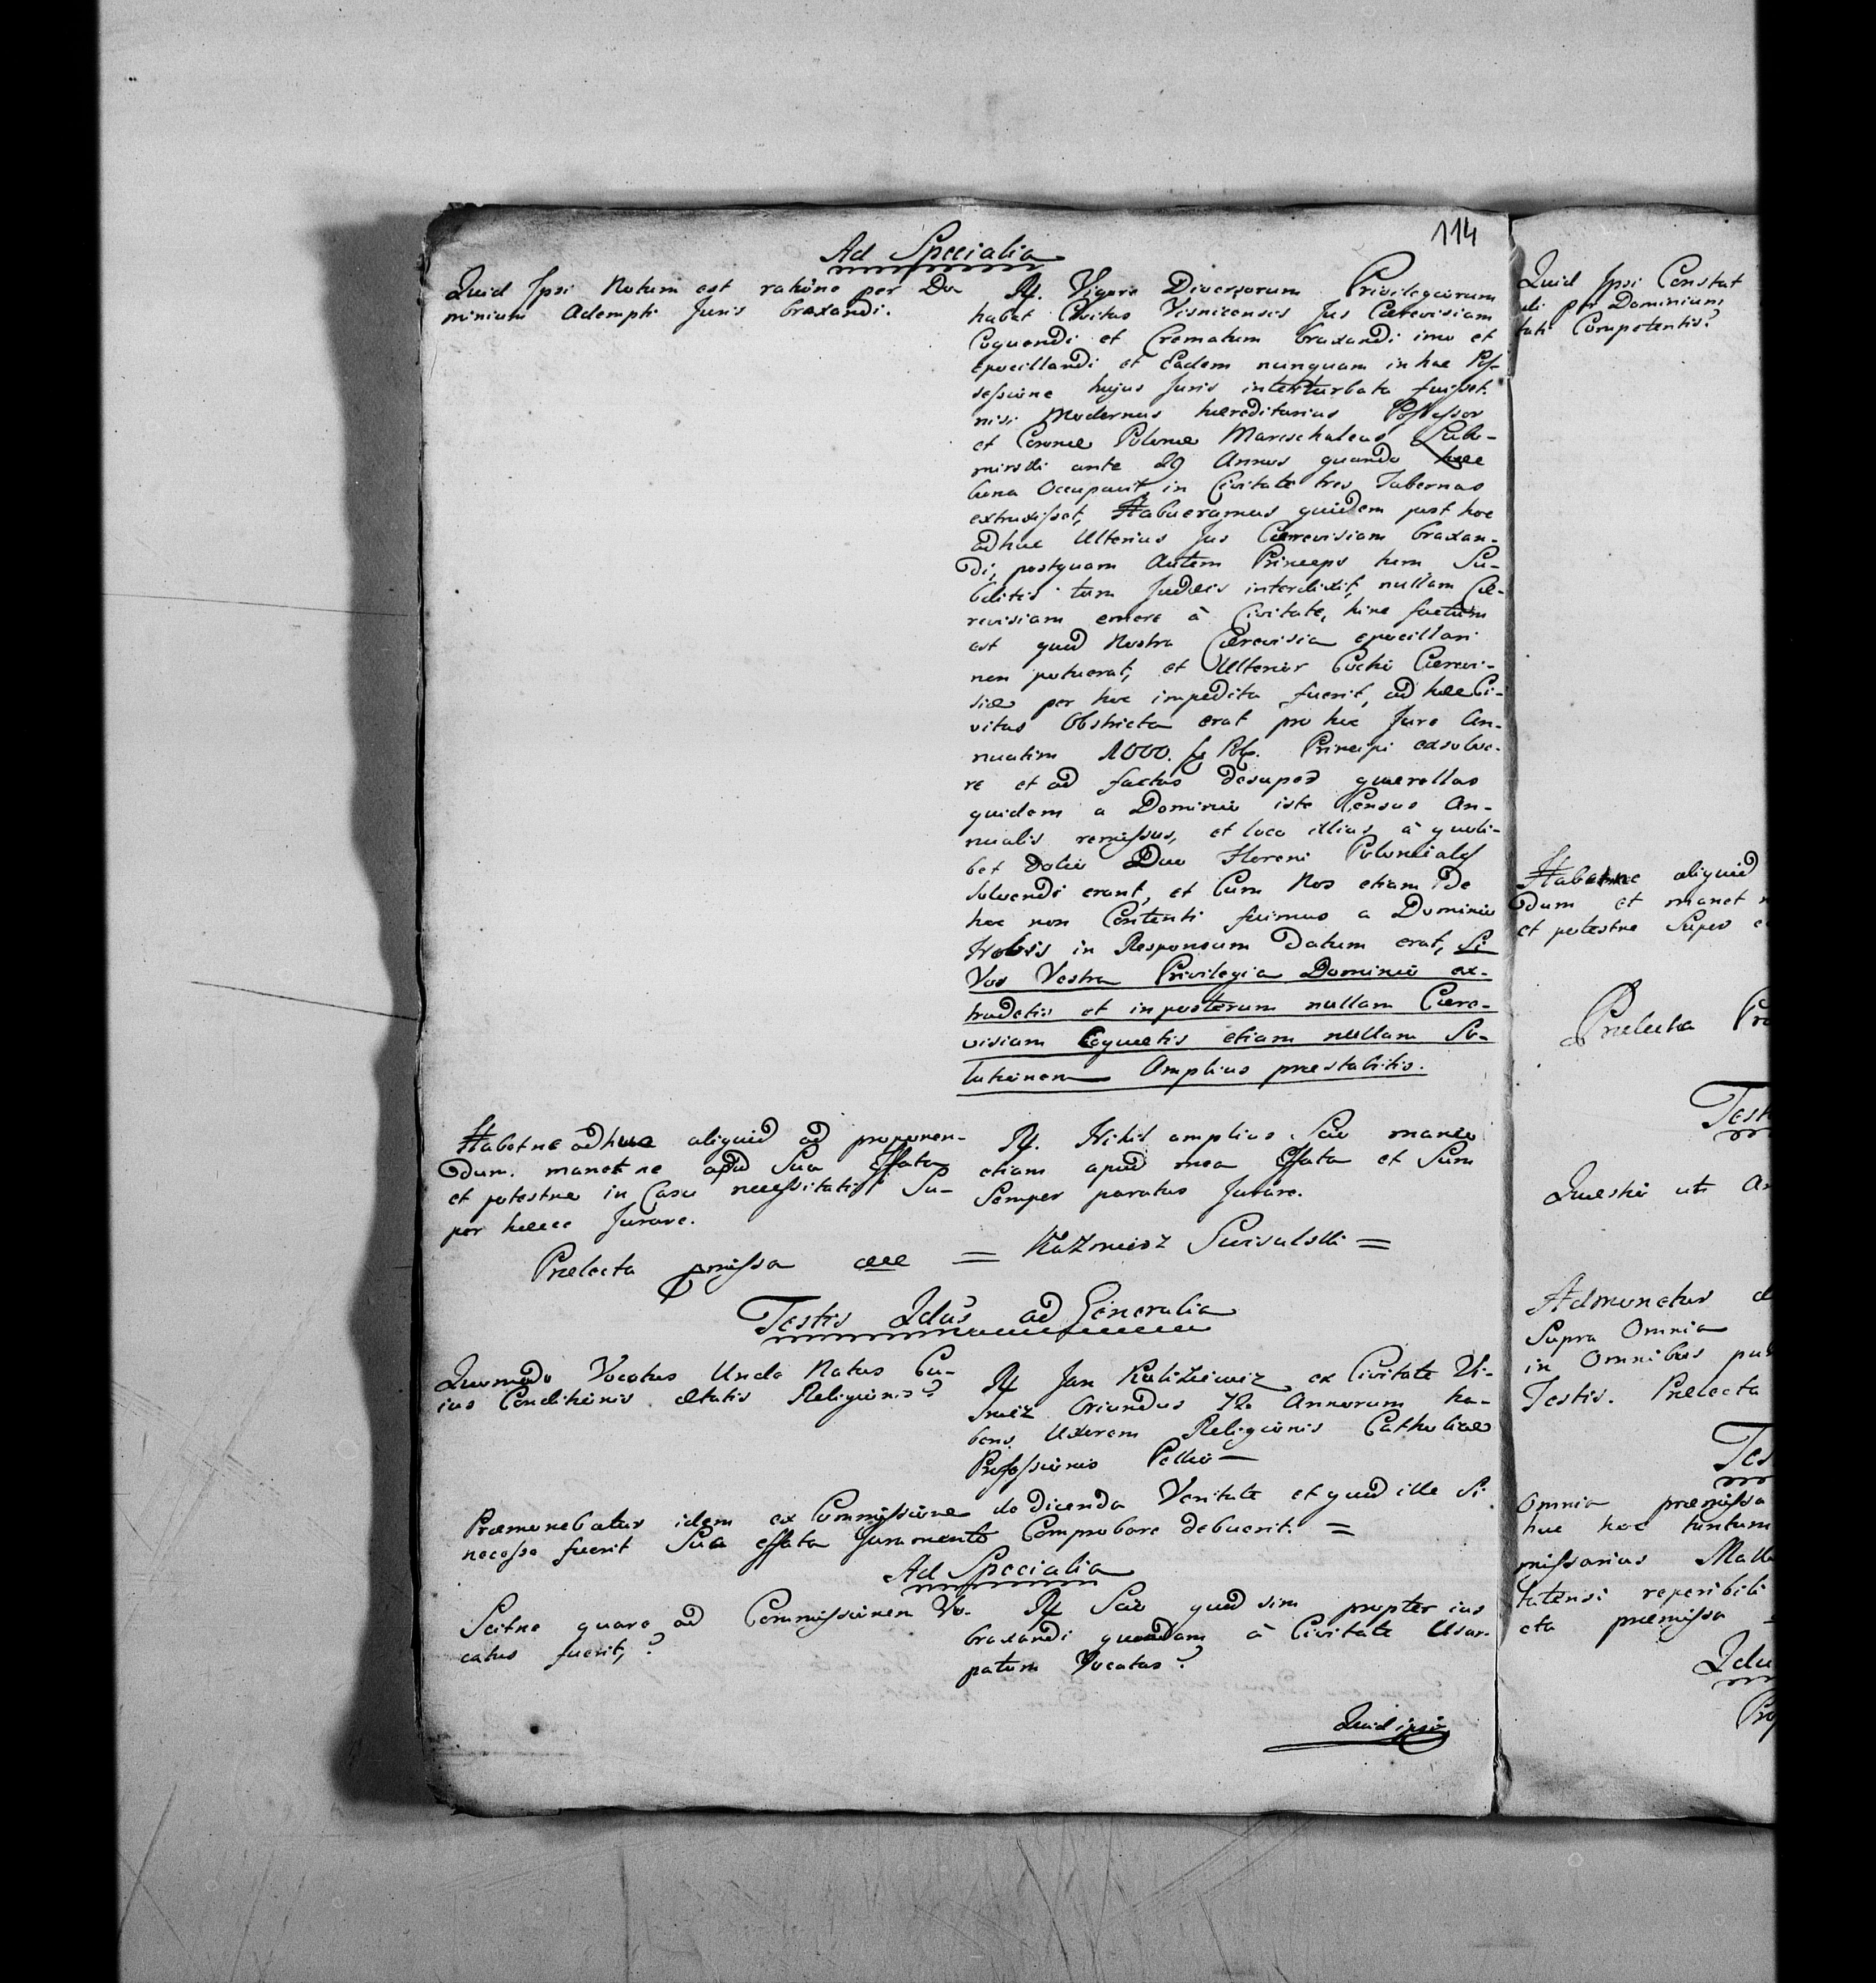 114
Ad Specialia
Quid Ipsi Notum est ratione per Do-
minium Adempti Juris braxandi.
Rf. Vigore Diversorum Privilegiorum
habet Civitas Visnicensis Jus Cærevisiam
Coquendi et Crematum braxandi imo et
epocillandi et Eadem nunquam in hac Pos-
sessione hujus Juris interturbata fuisset.
nisi Modernus hæreditarius Possessor
et Coronæ Poloniæ Mareschalcus Lubo-
mirski ante 29 Annos quando hæc
bona Occupavit, in Civitate tres Tabernas
extruxisset, Habueramus quidem post hoc
adhuc Ulterius Jus Cærevisiam braxan-
di, postquam Autem Princeps tum Su-
bditis tum Judæis interdixit, nullam Cæ-
revisiam emere à Civitate, hinc factum
est quod Nostra Cærevisia epocillari
non potuerat, et Ulterior Coctio Cærevi-
siæ per hoc impedita fuerit, ad hæc Ci-
vitas Obstricta erat pro hoc Jure An-
nuatim 1000. f Pol. Principi exsolve-
re et ad factas desuper quærellas
quidem a Dominio iste Census An-
nualis remissus, et loco illius, à quoli-
bet Dolio Duo Floreni Poloniales
solvendi erant, et Cum Nos etiam De
hoc non Contenti fuimus a Dominio
Nobis in Responsum Datum erat, Si
Vos Vestra Privilegia Dominio ex-
tradetis et inposterum nullam Cære-
visiam Coquetis etiam nullam So-
lutionem Amplius præstabitis.
Habetne adhuc aliquid ad proponen-
dum. manetne apud Sua Effata
et potestne in Casu necessitatis Su-
per hæcce Jurare.
Rf. Nihil amplius Scio maneo
etiam apud mea Effata et Sum
Semper paratus Jurare.
Prælecta pmissa
= Kazmierz Suisulski =
Testis 2dus ad Generalia
Quomodo Vocatus Unde Natus Cu-
ius Conditionis ætatis Religionis?
Rf Jan Kaliziewiz ex Civitate Vi-
sniez Oriundus 72 Annorum ha-
bens Uxorem Religionis Catholicæ
Professionis Pellio
Præmonebatur idem ex Commissione de dicenda Veritate et quod ille Si
necesse fuerit Sua effata Juramento Comprobare debuerit. =
Ad Specialia
Scitne quare ad Commissionem Vo-
catus fuerit,?
Rf Scio quod sim propter ius
braxandi quondam à Civitate Usur-
patum Vocatus?
Quid ipsi
Quid Ipsi Constat
uti per Dominium
tati Competentis?
Habetne aliquid
dum et manet
et potestne Super
Prælecta
Test
Quæstio uti
Admonetur
Supra Omnia
in Omnibus
Testis. Prælecta
Tes
Omnia præmissa
hac hoc tantum
missarius
tatensi reperibili
cta præmissa
2du